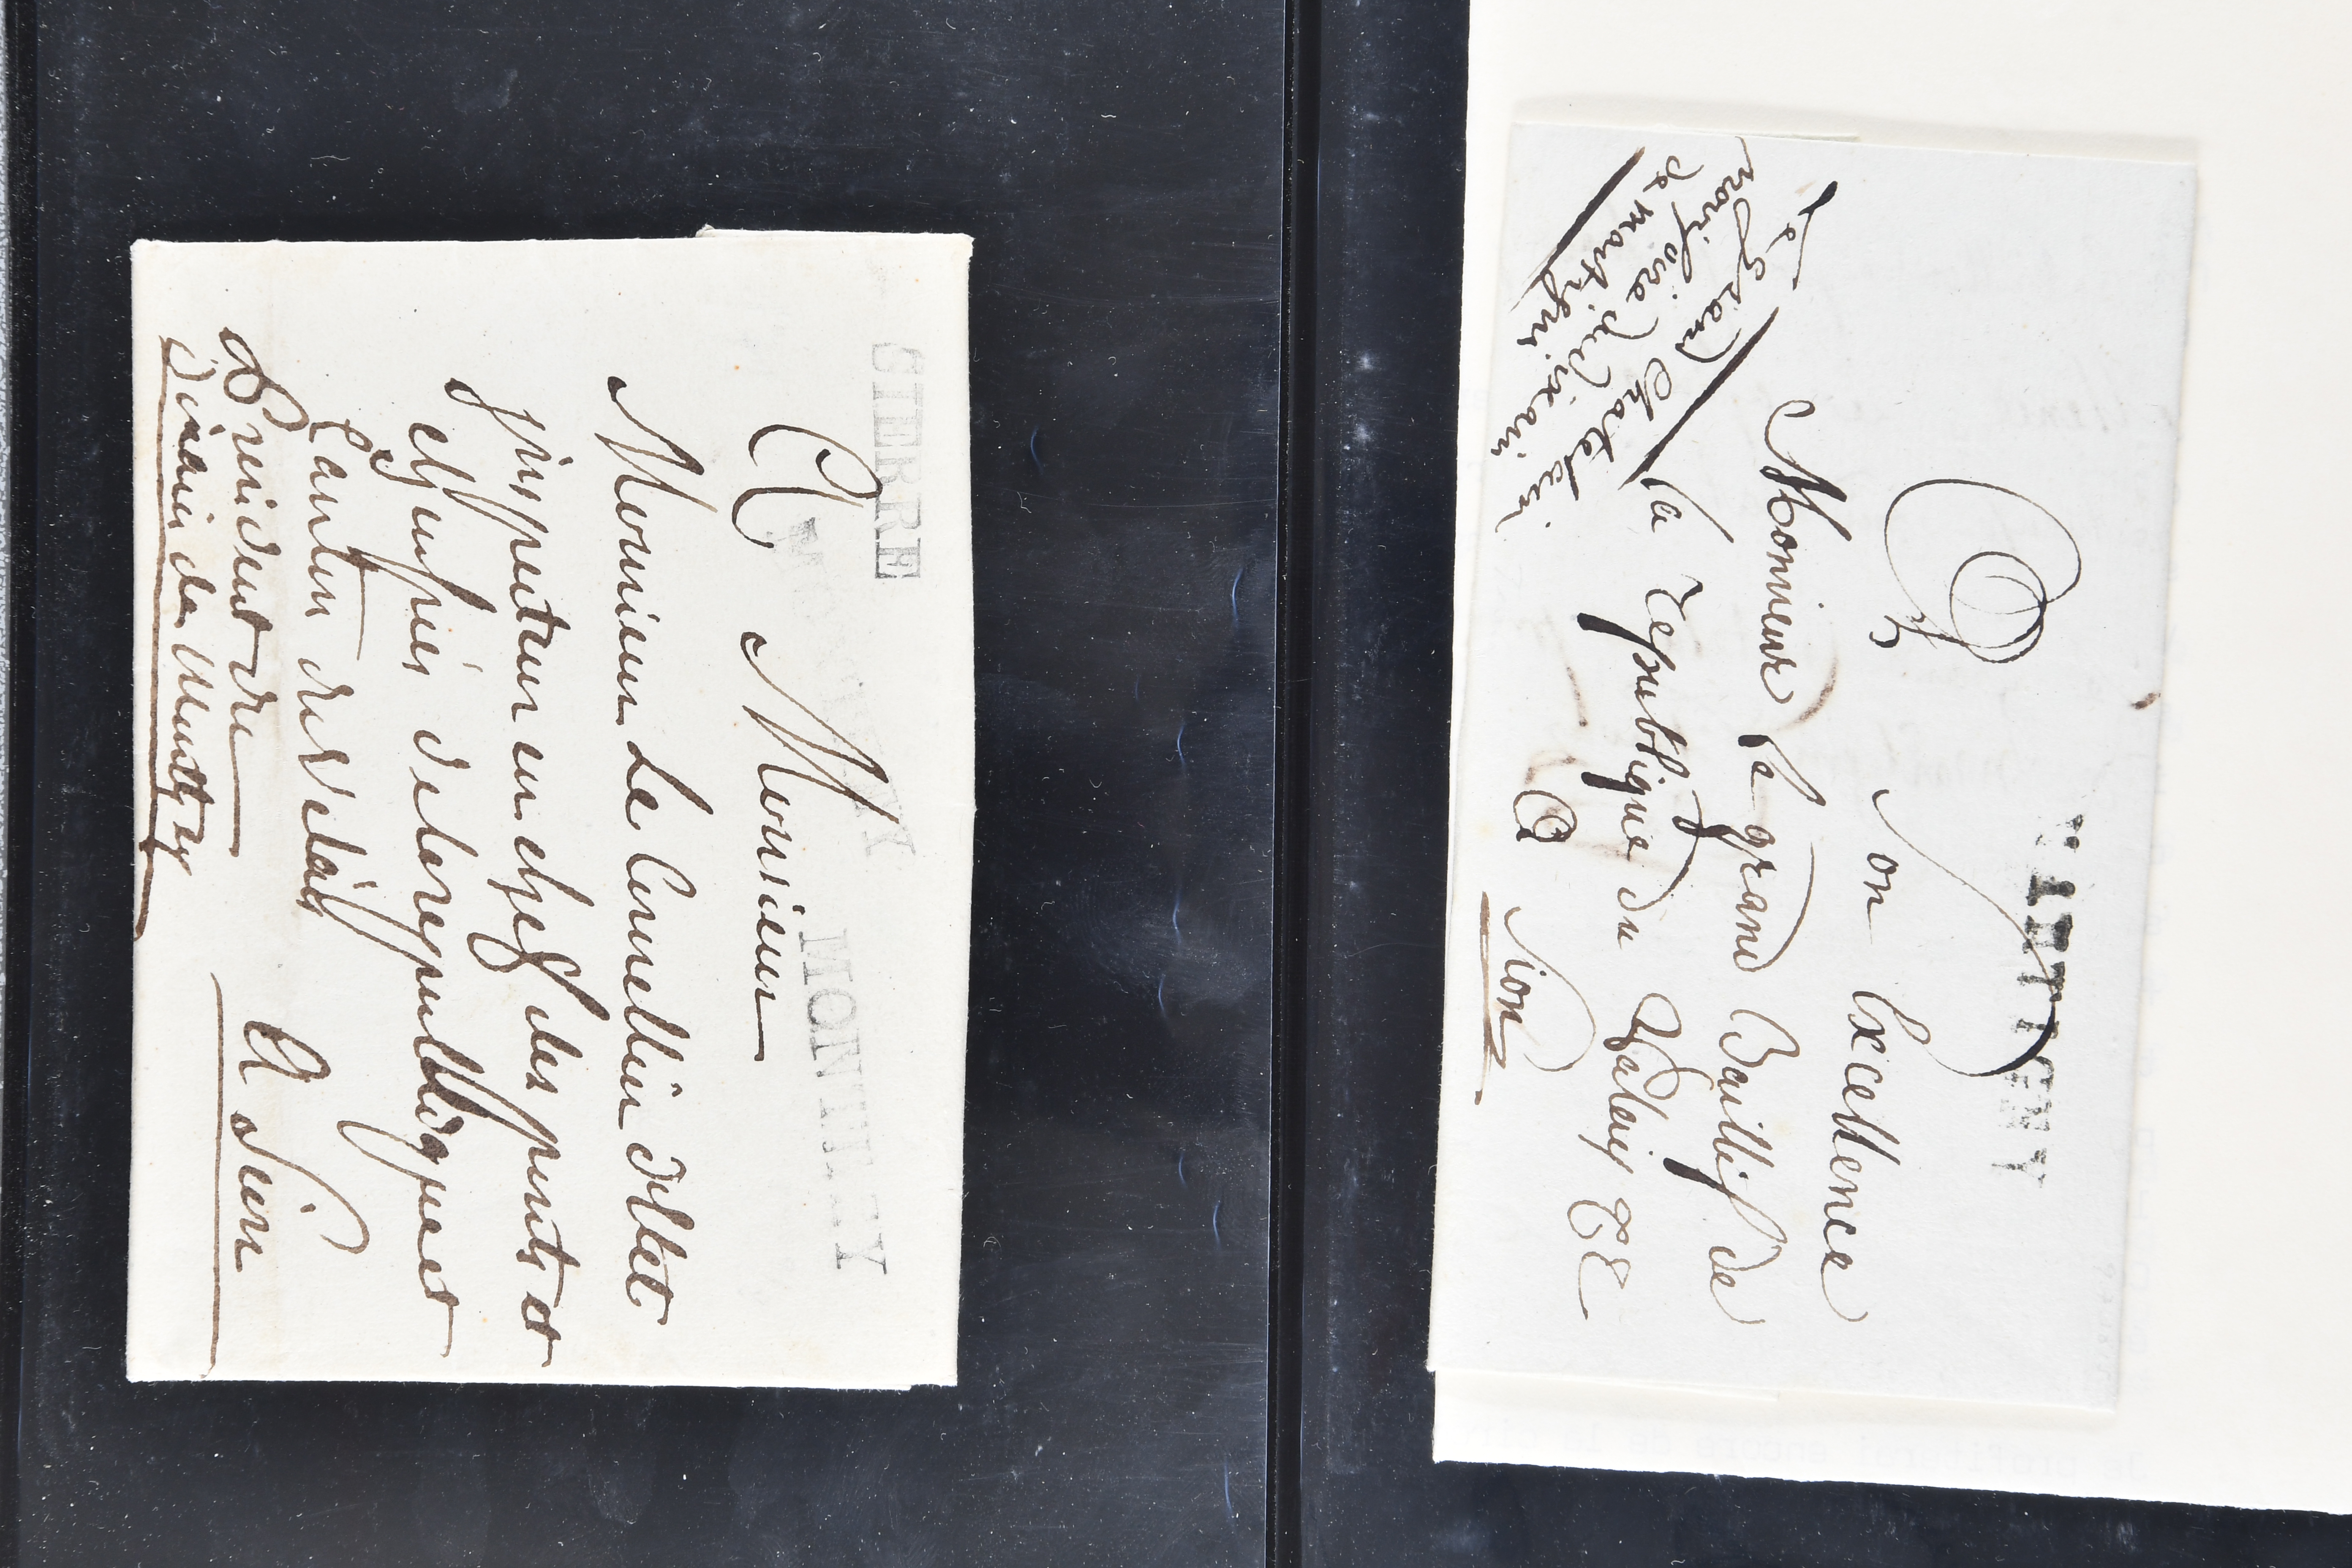 SIERRE
MONTHEY
MONTHEY
A Monsieur
Monsieur Le Conseillier
jnspecteur en chef des ponts et
chaussées de la republique et
Canton du Vallais
President du
Dixain de Monthey
A Sion
MARTIGNY
A Son Excellence
Monsieur le grand Baillif de
la republique du Valley
A Sion
Le Grand Chatelain
provisoire du dixain
de martigni